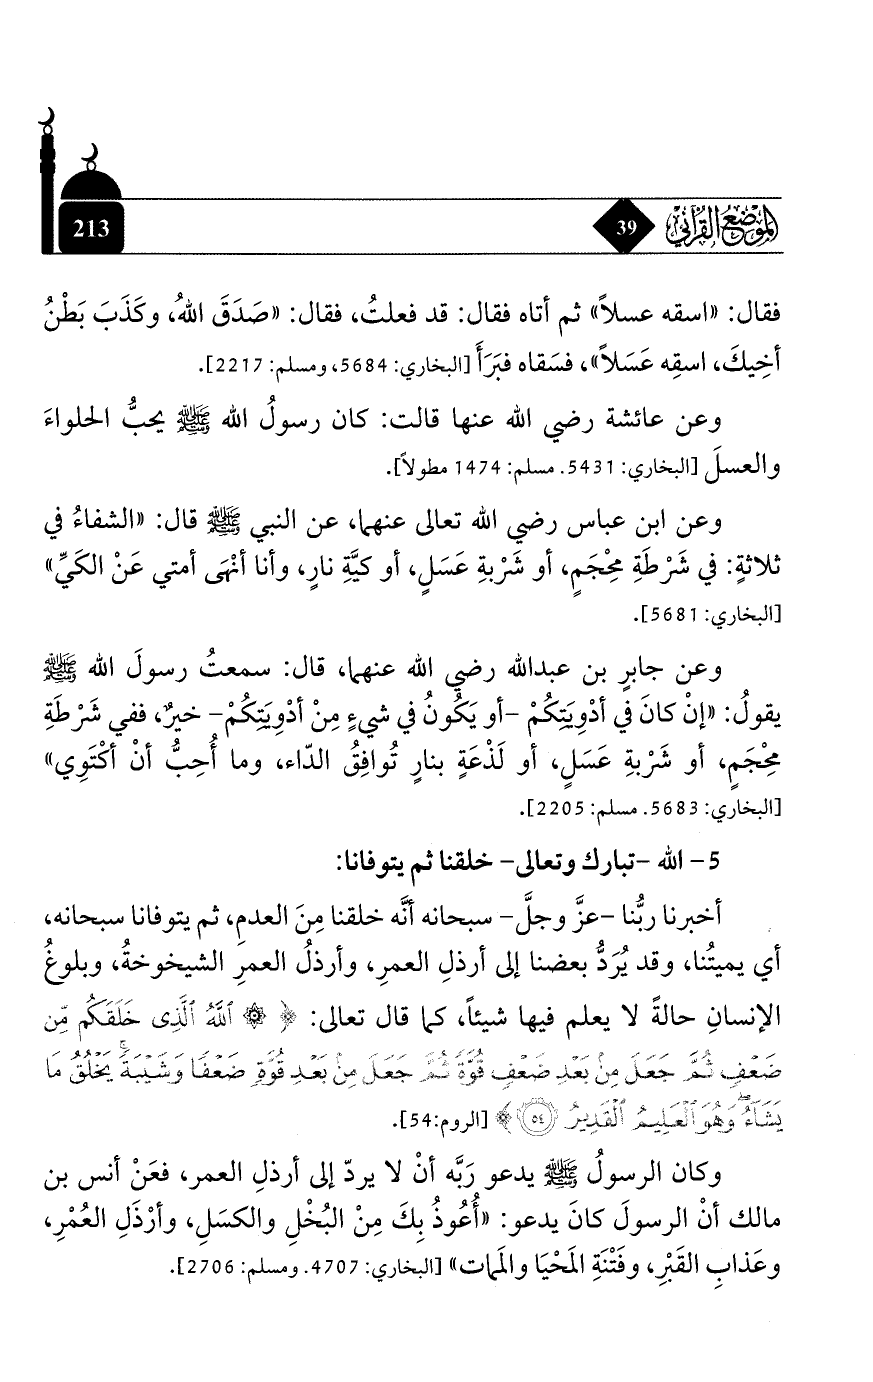 الموضع القرآني 39 213
فقال: «اسقه عسلاً» ثم أتاه فقال: قد فعلتُ، فقال: «صَدَقَ اللهُ، وكَذَبَ بَطْنُ
أخِيكَ، اسقِه عَسَلاً»، فسَقاه فبَرَأَ [البخاري: 5684، ومسلم: 2217].
وعن عائشة رضي الله عنها قالت: كان رسولُ الله ﷺ يحبُّ الحلواءَ
والعسلَ [البخاري: 5431. مسلم: 1474 مطولاً].
وعن ابن عباس رضي الله تعالى عنهما، عن النبي ﷺ قال: «الشفاءُ في
ثلاثةٍ: في شَرْطَةِ مِحْجَمٍ، أو شَرْبةِ عَسَلٍ، أو كيَّةِ نارٍ، وأنا أنْهَى أمتي عَنْ الكَيِّ»
[البخاري: 5681].
وعن جابرٍ بن عبدالله رضي الله عنهما، قال: سمعتُ رسولَ الله ﷺ
يقولُ: «إنْ كانَ في أدْوِيَتِكُمْ -أو يَكُونُ في شيءٍ مِنْ أدْوِيَتِكُمْ- خيرٌ، ففي شَرْطَةِ
مِحْجَمٍ، أو شَرْبةِ عَسَلٍ، أو لَذْعَةٍ بنارٍ تُوافِقُ الدّاء، وما أُحِبُّ أنْ أكْتَوِي»
[البخاري: 5683. مسلم: 2205].
5- الله -تبارك وتعالى- خلقنا ثم يتوفانا:
أخبرنا ربُّنا -عزَّ وجلَّ- سبحانه أنَّه خلقنا مِنَ العدمِ، ثم يتوفانا سبحانه،
أي يميتُنا، وقد يُرَدُّ بعضنا إلى أرذلِ العمرِ، وأرذلُ العمرِ الشيخوخةُ، وبلوغُ
الإنسانِ حالةً لا يعلم فيها شيئاً، كما قال تعالى: ﴿ ۞ ٱللَّهُ ٱلَّذِى خَلَقَكُم مِّن
ضَعْفٍ ثُمَّ جَعَلَ مِنۢ بَعْدِ ضَعْفٍ قُوَّةً ثُمَّ جَعَلَ مِنۢ بَعْدِ قُوَّةٍ ضَعْفًا وَشَيْبَةً ۚ يَخْلُقُ مَا
يَشَآءُ ۖ وَهُوَ ٱلْعَلِيمُ ٱلْقَدِيرُ ٥٤ ﴾ [الروم:54].
وكان الرسولُ ﷺ يدعو رَبَّه أنْ لا يردّ إلى أرذلِ العمر، فعَنْ أنس بن
مالك أنْ الرسولَ كانَ يدعو: «أُعُوذُ بِكَ مِنْ البُخْلِ والكسَلِ، وأرْذَلِ العُمْرِ،
وعَذابِ القَبْرِ، وفَتْنَةِ المَحْيَا والمَمات» [البخاري: 4707. ومسلم: 2706].